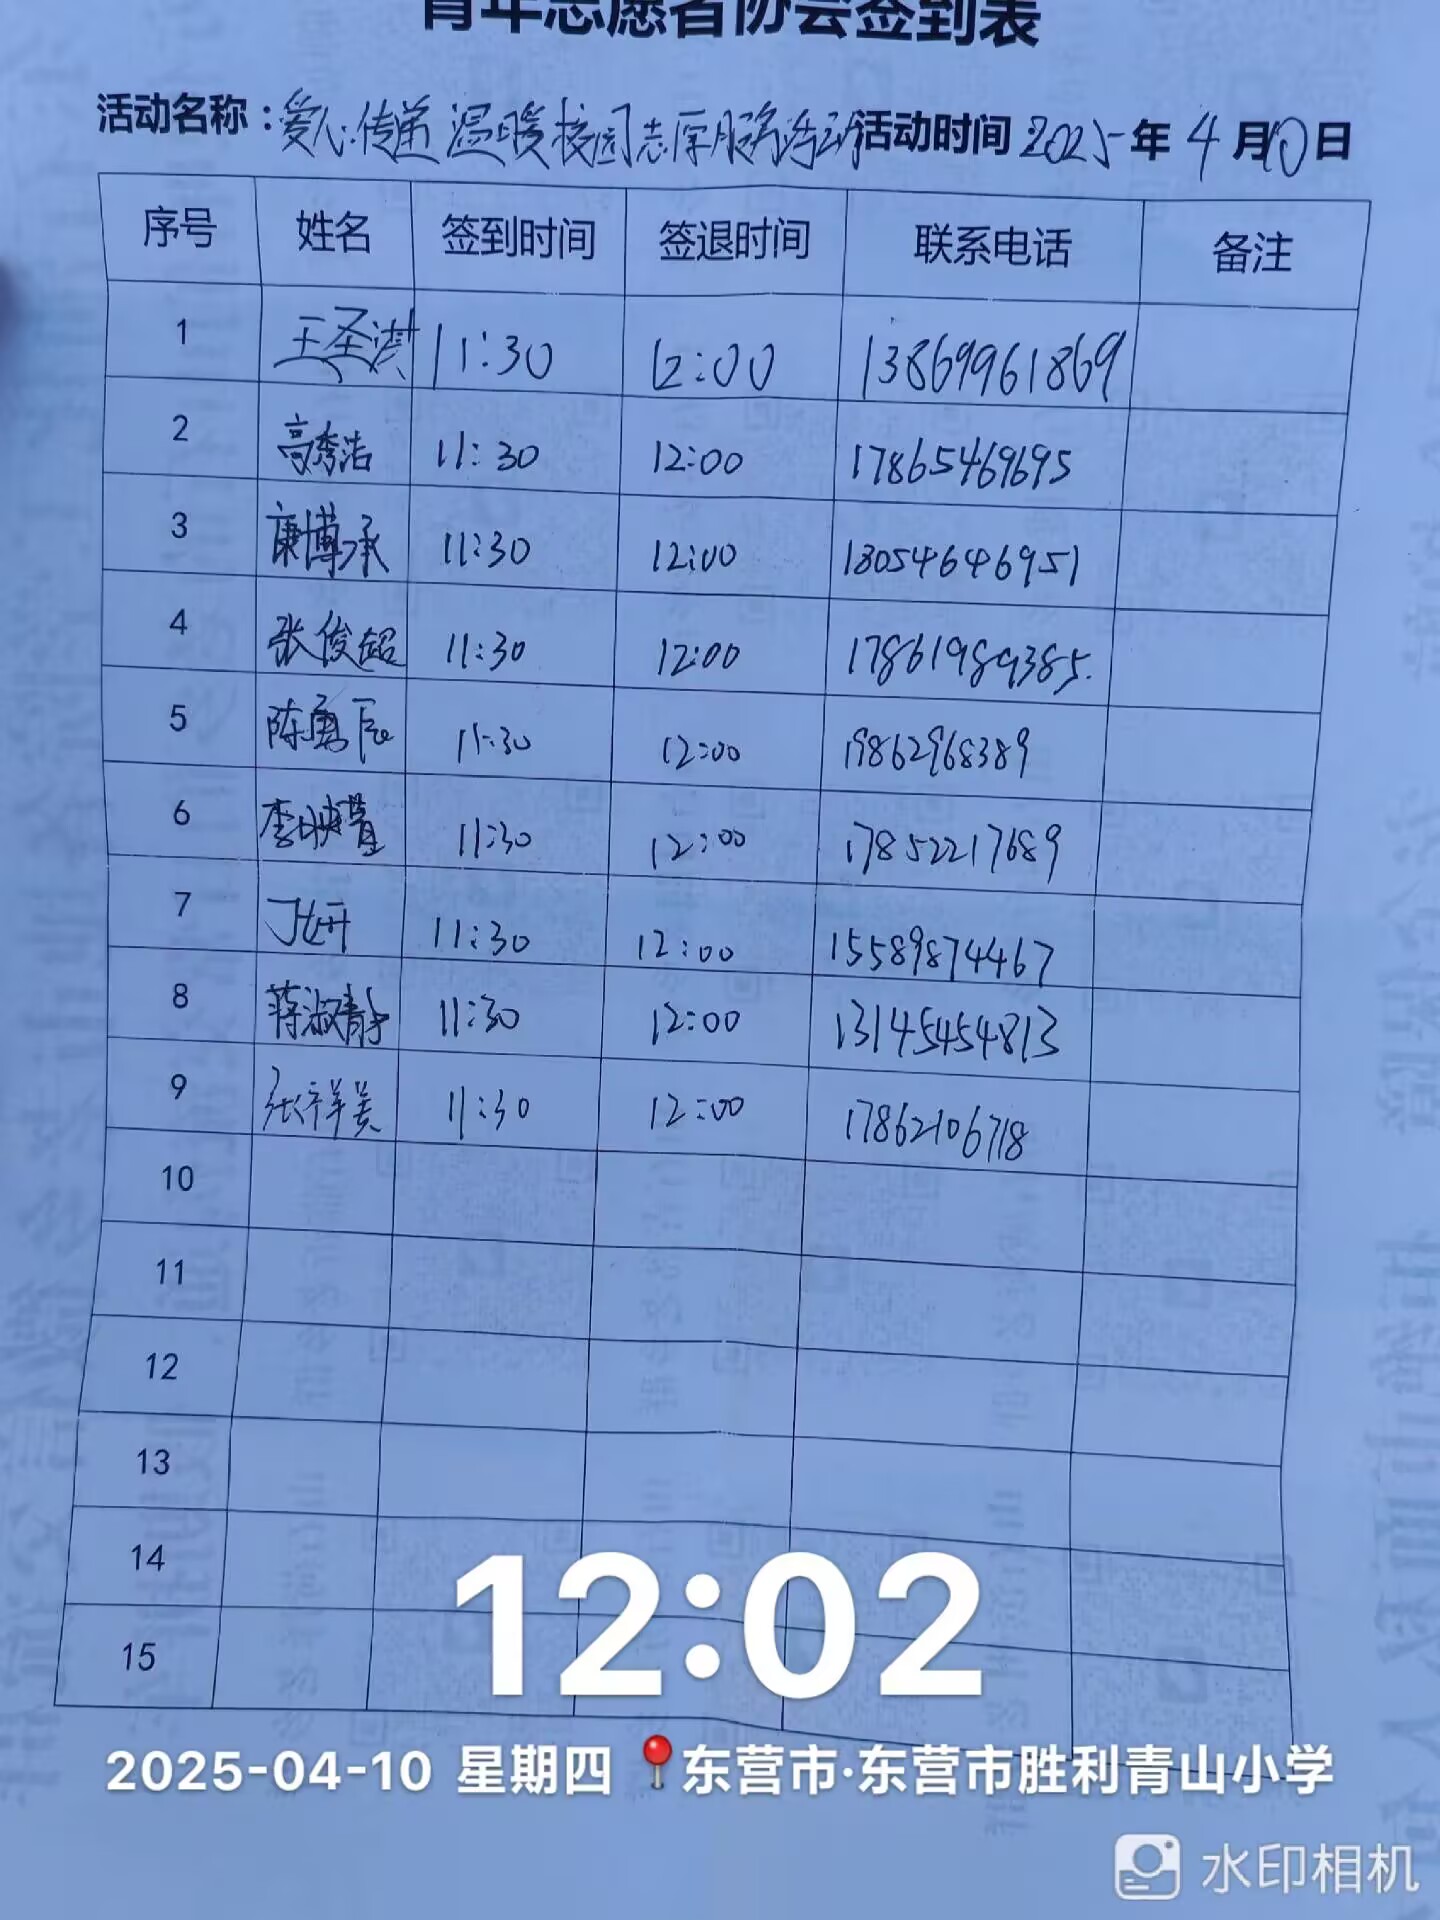 青年志愿者协会签到表
活动名称：爱心传递 温暖校园志愿服务活动 活动时间 2025年 4 月 10 日
序号 姓名 签到时间 签退时间 联系电话 备注
1 王圣淇 11:30 12:00 13869961869
2 高秀洁 11:30 12:00 17865469695
3 康博承 11:30 12:00 18054646951
4 张俊超 11:30 12:00 17861989385.
5 陈勇辰 11:30 12:00 19862968389
6 李映萱 11:30 12:00 17852217689
7 丁妍 11:30 12:00 15589874467
8 蒋淑静 11:30 12:00 13145454813
9 张祥美 11:30 12:00 17862106718
10
11
12
13
14
15
12:02
2025-04-10 星期四 东营市·东营市胜利青山小学
水印相机